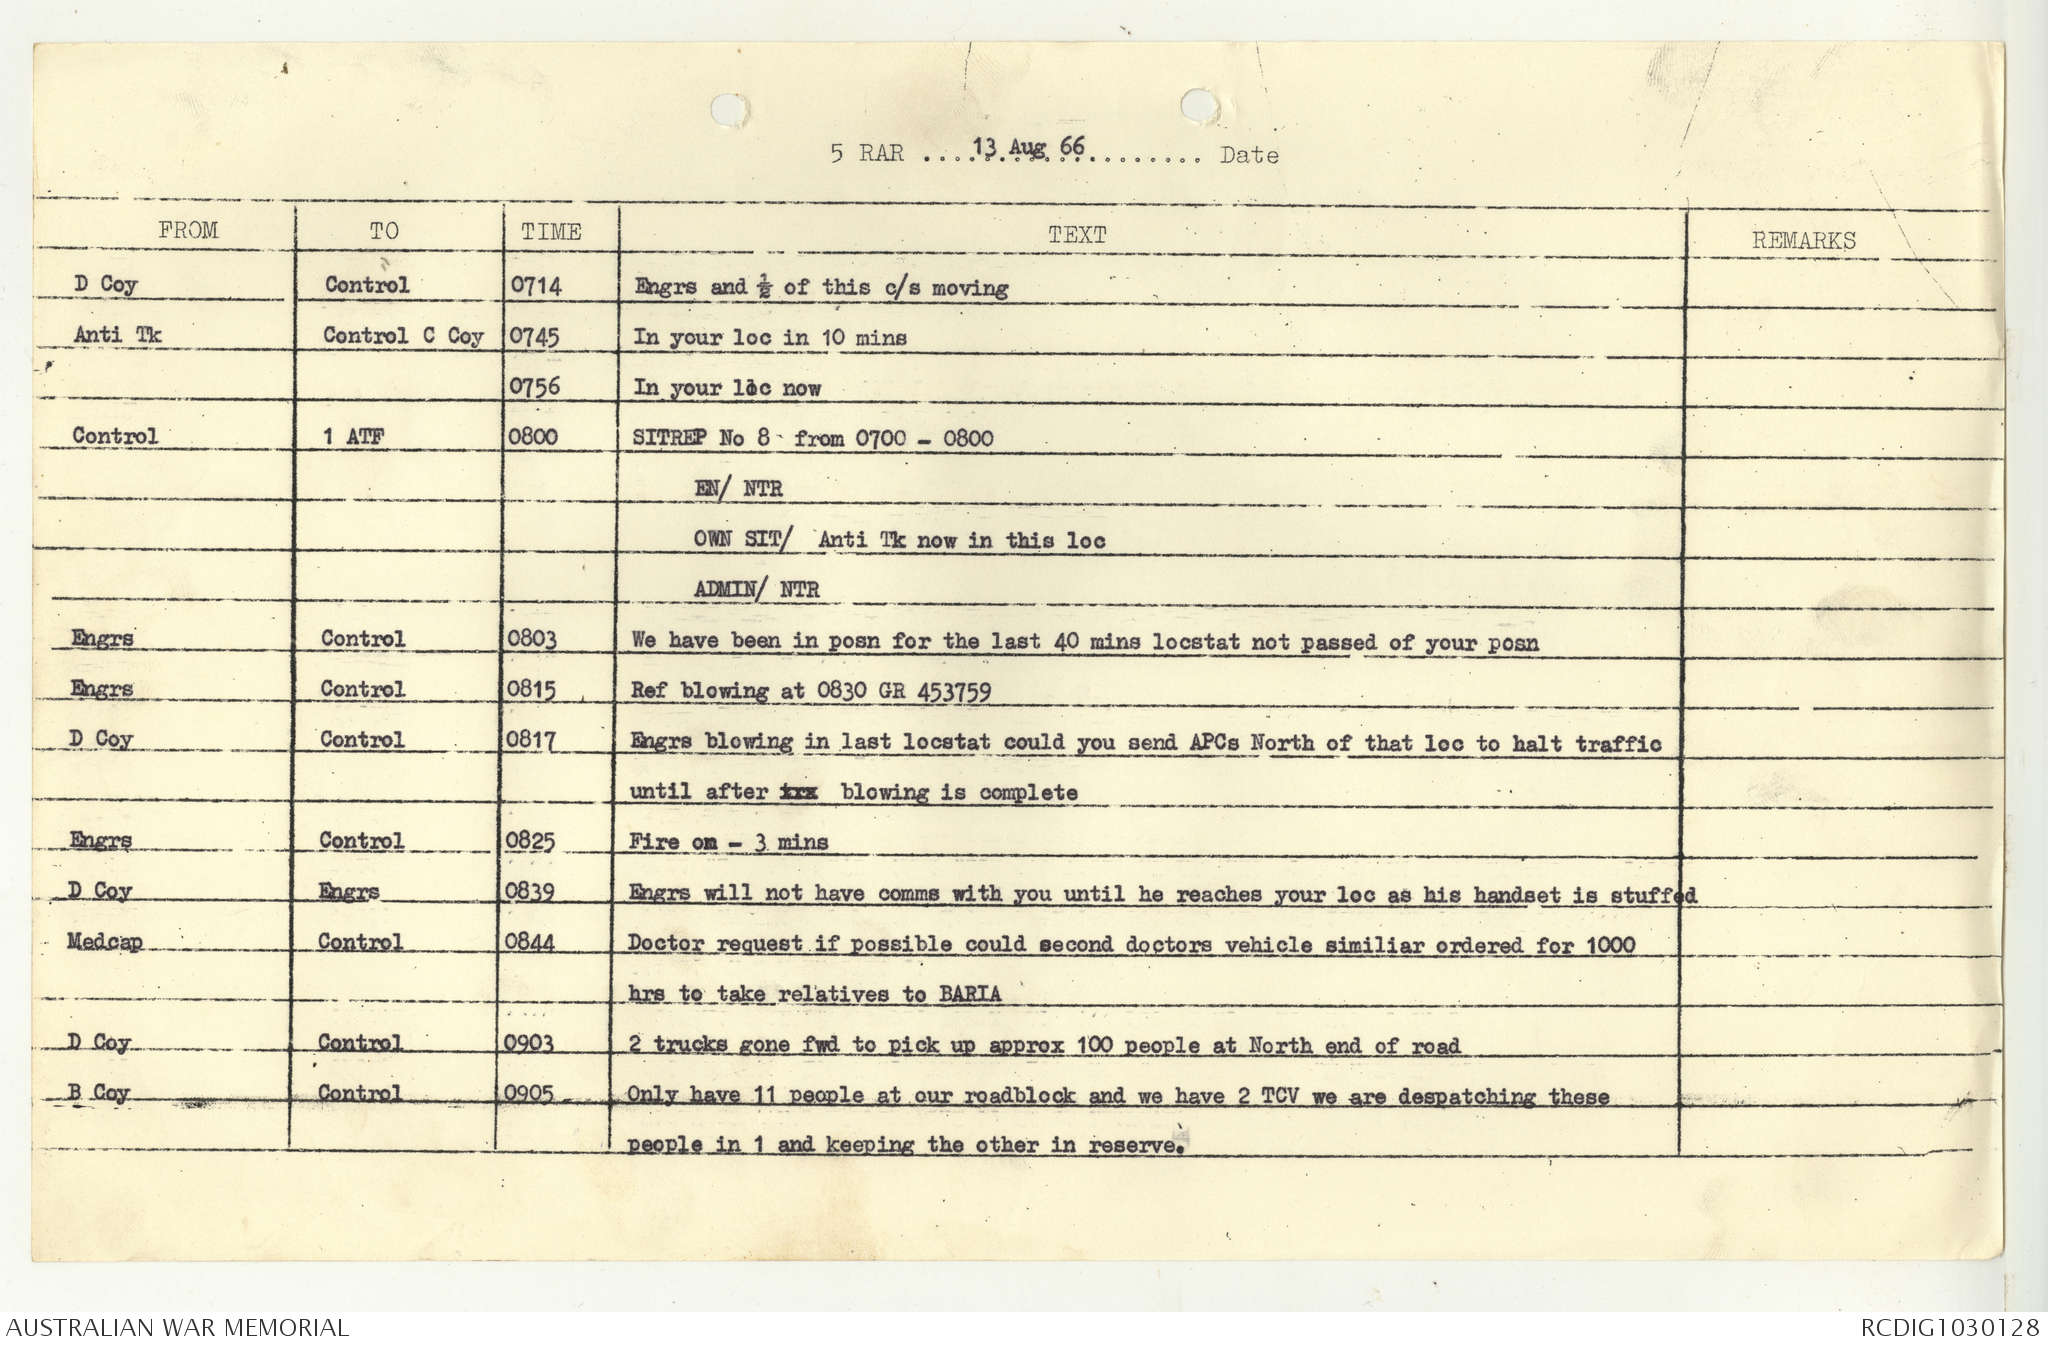 5 RAR .... 13 Aug 66 .... Date
FROM TO TIME TEXT REMARKS
D Coy Control 0714 Engrs and ½ of this c/s moving
Anti Tk Control C Coy 0745 In your loc in 10 mins
0756 In your loc now
Control 1 ATF 0800 SITREP No 8 from 0700 - 0800
EN/ NTR
OWN SIT/ Anti Tk now in this loc
ADMIN/ NTR
Engrs Control 0803 We have been in posn for the last 40 mins locstat not passed of your posn
Engrs Control 0815 Ref blowing at 0830 GR 453759
D Coy Control 0817 Engrs blowing in last locstat could you send APCs North of that loc to halt traffic
until after blowing is complete
Engrs Control 0825 Fire on - 3 mins
D Coy Engrs 0839 Engrs will not have comms with you until he reaches your loc as his handset is stuffed
Medcap Control 0844 Doctor request if possible could second doctors vehicle similiar ordered for 1000
hrs to take relatives to BARIA
D Coy Control 0903 2 trucks gone fwd to pick up approx 100 people at North end of road
B Coy Control 0905 Only have 11 people at our roadblock and we have 2 TCV we are despatching these
people in 1 and keeping the other in reserve.
AUSTRALIAN WAR MEMORIAL RCDIG1030128